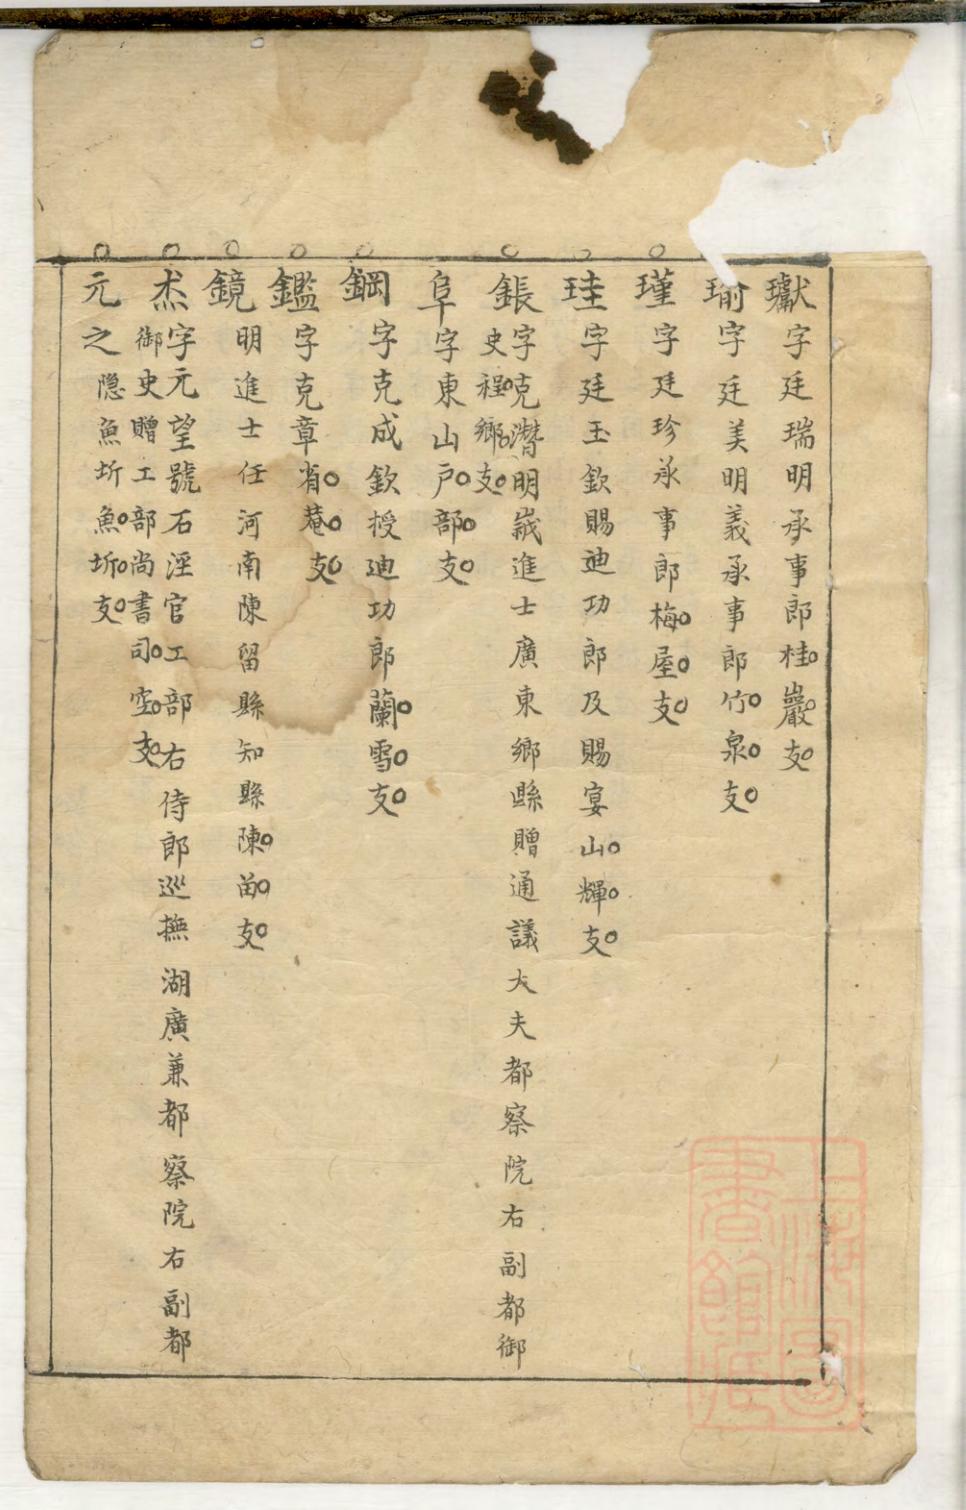 瓛字廷瑞明承事郎桂巖支
瑜字廷美明義承事郎竹泉支
瑾字廷珍承事郎梅屋支
珪字廷玉欽賜迪功郎及賜宴山輝支
鋹字克潛明嵗進士廣東鄉縣贈通議大夫都察院右副都御
史程鄉支
阜字東山户部支
鋼字克成欽授迪功郎蘭雪支
鑑字克章省菴支
鏡明進士任河南陳留縣知縣陳㽞支
杰字元望號石淫官工部右侍郎巡撫湖廣兼都察院右副都
御史贈工部尚書司空支
元之隠魚圻魚圻支
上海圖
書館藏